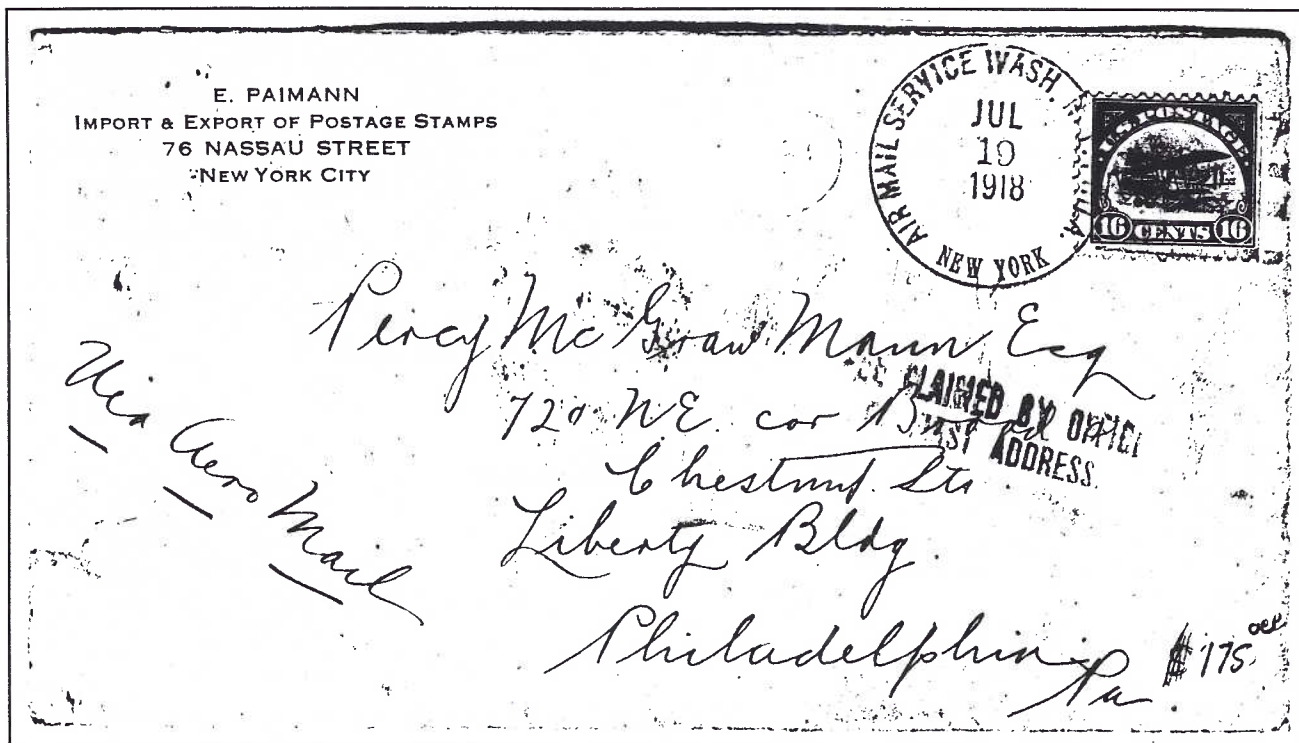 E. PAIMANN
IMPORT & EXPORT OF POSTAGE STAMPS
76 NASSAU STREET
NEW YORK CITY
AIR MAIL SERVICE WASH.
JUL
19
1918
NEW YORK
U.S. POSTAGE
16 CENTS 16
Percy McGraw Mann Esq
720 N.E. cor Broad &
Chestnut Sts
Liberty Bldg.
Philadelphia
Pa
Via Aero Mail
CLAIMED BY OFFICE
FIRST ADDRESS.
$175